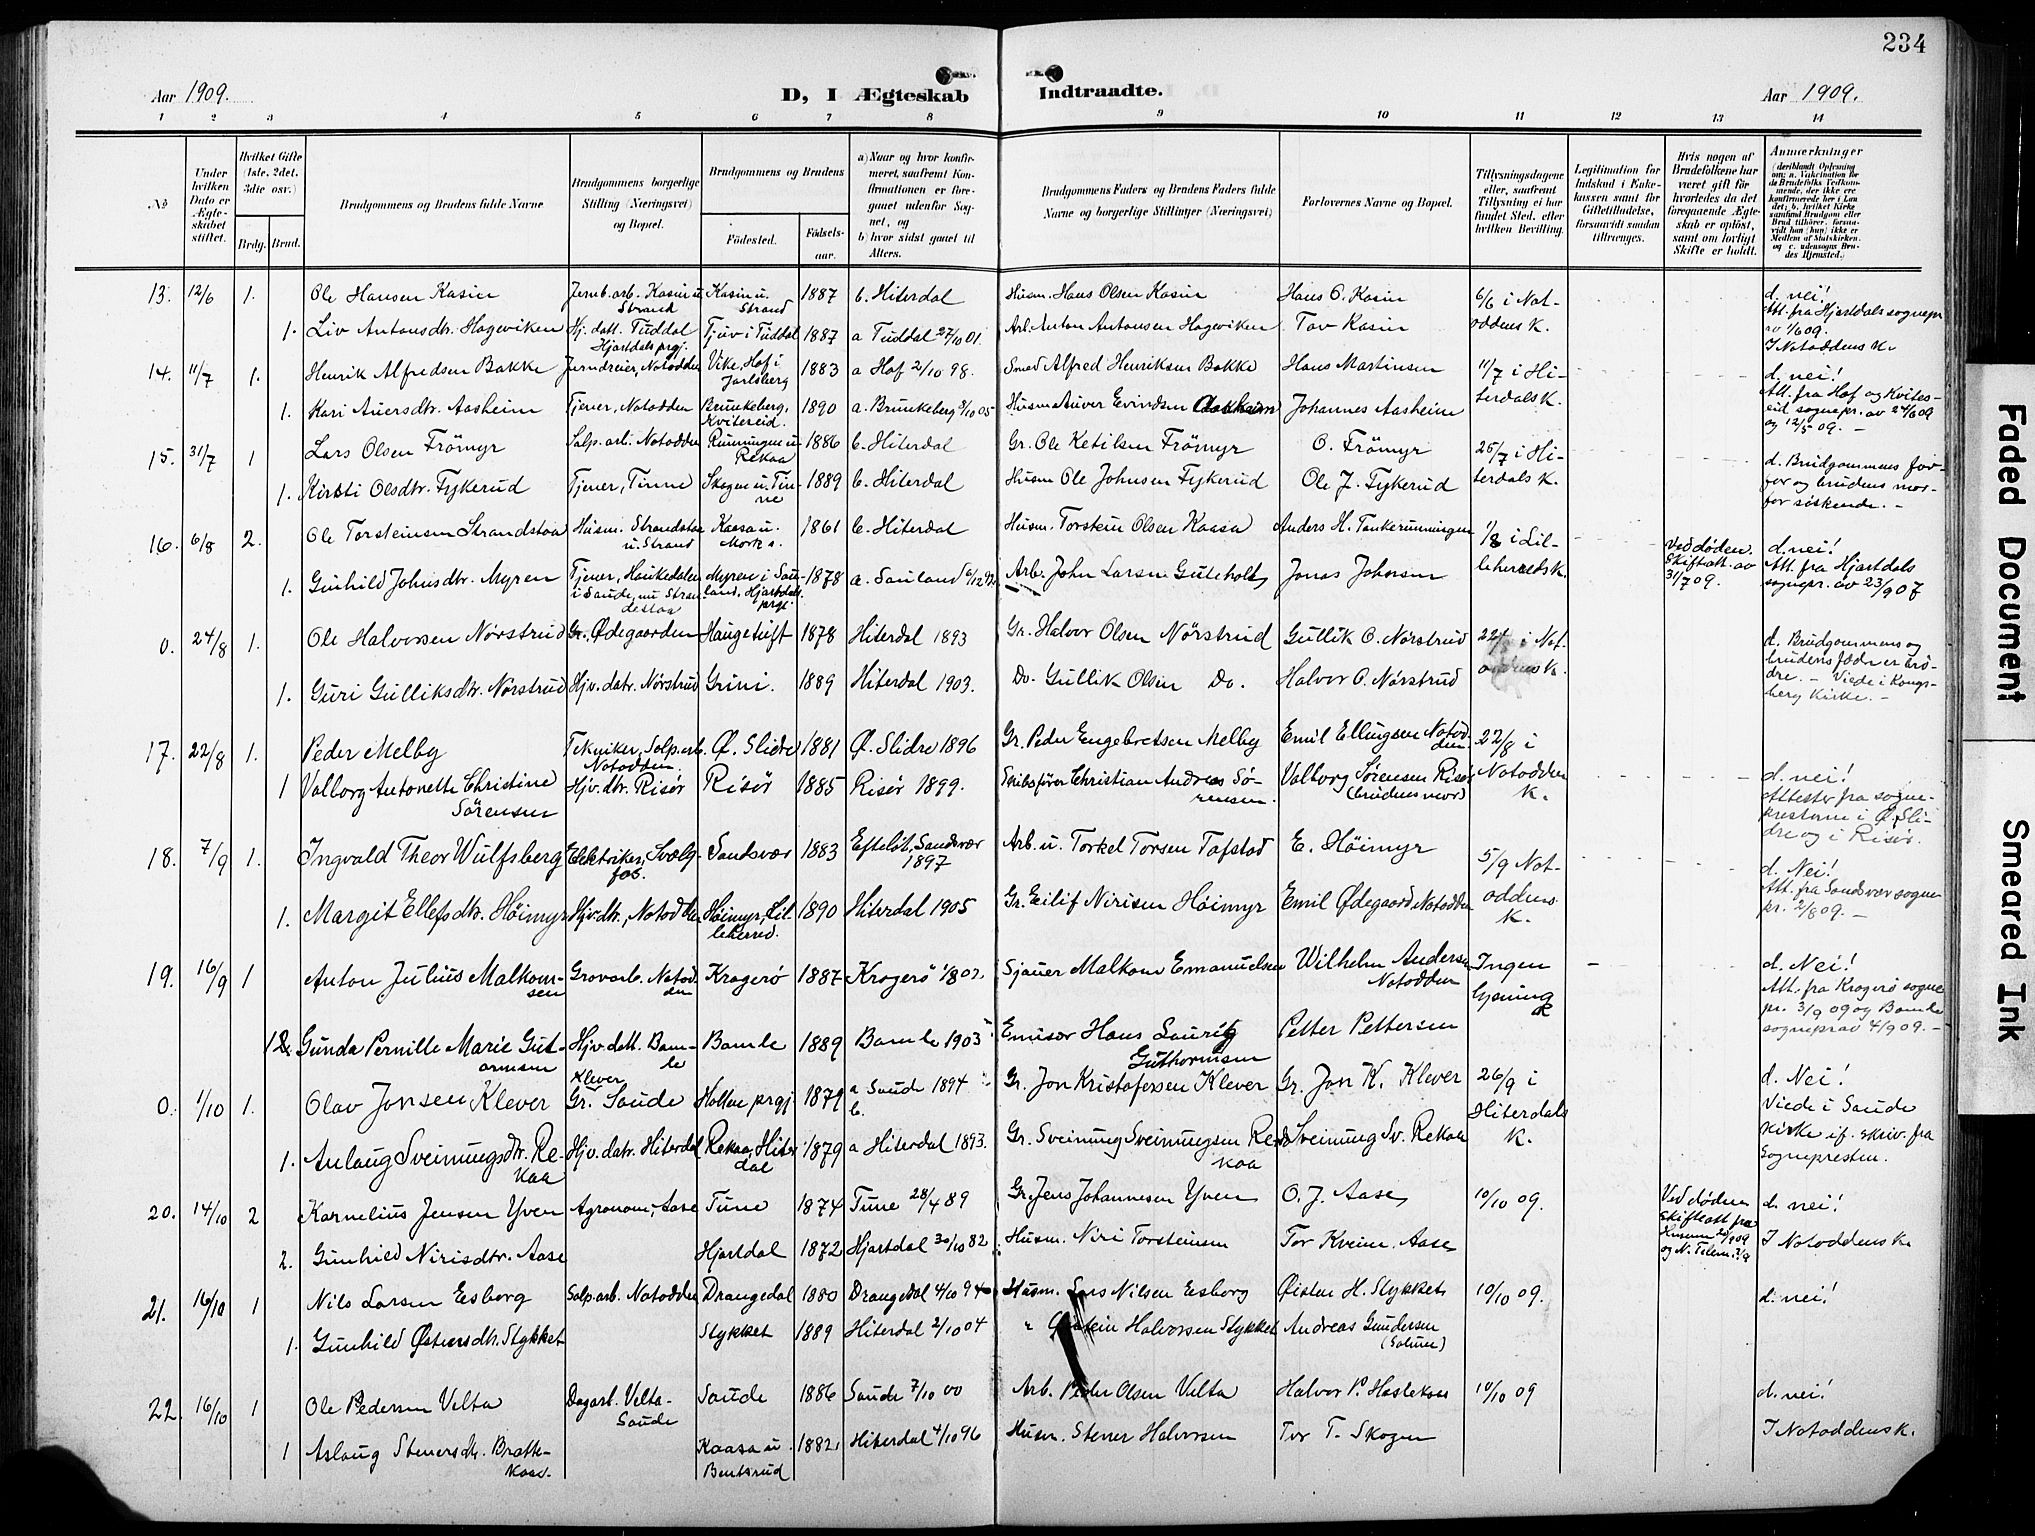 234
Aar 1909.
D, I Ægteskab Indtraadte.
Aar 1909.
1 2 3 4 5 6 7 8 9 10 11 12 13 14
No
Under hvilken Dato er Ægteskabet stiftet.
Hvilket Gifte (1ste, 2det, 3die osv.)
Brdg. Brud.
Brudgommens og Brudens fulde Navne
Brudgommens borgerlige Stilling (Næringsvei) og Bopæl.
Brudgommens og Brudens
Fødested.
Fødselsaar.
a) Naar og hvor konfirmeret, saafremt Konfirmationen er foregaaet udenfor Sognet, og
b) hvor sidst gaaet til Alters.
Brudgommens Faders og Brudens Faders fulde Navne og borgerlige Stillinger (Næringsvei)
Forlovernes Navne og Bopæl.
Tillysningsdagene eller, saafremt Tillysning ei har fundet Sted, efter hvilken Bevilling.
Legitimation for Indskud i Enkekassen samt for Giftetilladelse, forsaavidt saadan tiltrænges.
Hvis nogen af Brudefolkene har været gift før hvorledes da det foregaaende Ægteskab er opløst, samt om lovligt Skifte er holdt.
Anmærkninger
(deriblandt Oplysning om: a. Vakcination for de Brudefolks Vedkommende, der ikke ere konfirmerede her i Landet; b. hvilket Kirkesamfund Brudgom eller Brud tilhører, forsaavidt han (hun) ikke er Medlem af Statskirken, og c. udensogns Brudes Hjemsted.)
13. 12/6 1. Ole Hansen Kasin Jernb.arb. Kasin u Strand Kasin u. Strand 1887 b. Hiterdal Husm. Hans Olsen Kasin Hans O. Kasin 6/6 i Notoddens K. d. nei! Att. fra Hjartdals sognepr av 1/6 09. I Notoddens K.
1. Liv Antonsdtr. Hageviken Hj. datt. Tuddal Hjartdals prgj. Tjuv i Tuddal 1887 a Tuddal 27/10 01. Arb. Anton Antonsen Hageviken Tov Kasin
14. 11/7 1. Henrik Alfredsen Bakke Jerndreier, Notodden Vike, Hof i Jarlsberg 1883 a Hof 2/10 98. Smed Alfred Henriksen Bakke Hans Martinsen 11/7 i Hiterdals K. d. nei! Att. fra Hof og Kviteseid sognepr. av 24/6 09 og 12/5 09.
1. Kari Auversdtr. Aasheim Tjener, Notodden Brunkeberg, Kviteseid. 1890 a. Brunkeberg 8/10 05 Husm Auver Evindsen Aasheim Johannes Aasheim
15. 31/7 1 Lars Olsen Frömyr Salp. arb. Notodden Runningen u Rekaa 1886 b. Hiterdal Gr. Ole Ketilsen Frömyr O. Frömyr 25/7 i Hiterdals K. d. Brudgommens farfar og brudens morfar söskende.
1. Kirsti Olsdtr. Fykerud Tjener, Tinne Skogen u. Tinne 1889 b. Hiterdal Husm Ole Johnsen Fykerud Ole J. Fykerud
16. 6/8 2. Ole Torsteinsen Strandstaa Husm. Strandstaa u. Strand Kaasa u. Mork s. 1861 b. Hiterdal Husm. Torstein Olsen Kaasa Anders H. Tankerunningen 1/8 i Lilleherreds K. Ved døden. Skifteatt. av 31/7 09. d. nei! Att. fra Hjartdals sognepr. av 23/9 07
1. Gunhild Johnsdtr. Myren Tjener, Haukedalen i Saude, nu Strandestaa Myren i Sauland, Hjartdals prgj. 1878 a. Sauland Arb. John Larsen Guteholt Jonas Johnsen
0. 24/8 1. Ole Halvorsen Nörstrud Gr. Ødegaarden Haugetuft 1878 Hiterdal 1893 Gr. Halvor Olsen Nörstrud Gullik O. Nörstrud 22/8 i Notoddens K. d. Brudgommens og brudens fædre er brødre. - Viede i Kongsberg Kirke. -
1. Guri Gulliksdtr. Nörstrud Hjv. datr. Nörstrud Grini. 1889 Hiterdal 1903. Do. Gullik Olsen Do. Halvor O. Nörstrud
17. 22/8 1. Peder Melby Tekniker, Salp.arb. Notodden Ø. Slidre 1881 Ø. Slidre 1896 Gr. Peder Engebretsen Melby Emil Ellingsen Notodden 22/8 i Notodden K.
1 Valborg Antonette Christine Sörensen Hjv. dtr. Risør Risør 1885 Risør 1899. Skibsfører Christian Andreas Sörensen. Valborg Sørensen Risør (brudens mor) d. nei! Attester fra sogneprestene i Ø. Slidre og i Risør.
18. 7/9 1. Ingvald Theor Wulfsberg Elektriker, Svælgfos. Sandsvær 1883 Efteløt, Sandsvær 1897 Arb. u. Torkel Torsen Tofstad E. Höimyr 5/9 Notoddens K. d. Nei! Att. fra Sandsvær sognepr. 2/8 09. -
1. Margit Ellefsdtr. Höimyr Hjv. dtr., Notodden Höimyr, Lilleherred. 1890 Hiterdal 1905 Gr. Eilif Nirisen Höimyr Emil Ødegaard Notodden
19. 16/9 1 Anton Julius Malkomsen Grovarb. Notodden Kragerö 1887 Kragerö 1/8 02. Sjauer Malkom Emanuelsen Wilhelm Andersen Notodden Ingen lysning d. Nei! Att. fra Kragerö sognepr. 3/9 09 og Bamble sognepr av 4/9 09. -
Gunda Pernille Marie Gutormsen Hjv. datt. Bamle Bamle 1889 Bamle 1903 Emisær Hans Lauritz Guthormsen Petter Pettersen
0. 1/10 1. Olav Jonsen Klever Klever Gr. Saude Hollen prgj 1879 a Saude 1894 b. Gr. Jon Kristofersen Klever Gr. Jon K. Klever 26/9 i Hiterdals K. d. Nei! Viede i Saude Kirke if. skriv. fra Sognepresten.
1. Anlaug Sveinungsdtr. Rekaa Hjv. datr. Hiterdal Rekaa, Hiterdal 1879 a Hiterdal 1893. Gr. Sveinung Sveinungsen Rekaa Sveinung Sv. Rekaa
20. 14/10 2 Kornelius Jensen Yven Agronom, Aase Tune 1874 Tune 28/4 89 Gr. Jens Johannesen Yven O. J. Aase, 10/10 09. Ved døden Skifteatt fra d. nei!
2. Gunhild Nirisdtr. Aase Hjartdal 1872 Hjartdal 30/10 82 Husm. Niri Torsteinsen Tor Kveim. Aase I Notoddens K.
21. 16/10 1 Nils Larsen Eisborg Salp.arb. Notodden Drangedal 1880 Drangedal 4/10 94 Husm. Lars Nilsen Eisborg Øisten H. Stykket 10/10 09. d. nei!
1. Gunhild Østensdtr. Stykket Stykket 1889 Hiterdal 2/10 04 " Østein Halvorsen Stykket Andreas Gundersen
22. 16/10 1 Ole Pedersen Velta Dagarb. Velta Saude Saude 1886 Saude 7/10 00 Arb. Peder Olsen Velta Halvor P. Haslekaas 10/10 09 d. nei!
1 Aslaug Stenersdtr. Brattekaas. Kaasa u. Bentsrud 1882 Hiterdal 4/10 96 Husm. Stener Halvorsen Tor T. Skogen I Notoddens K.
Faded Document
Smeared Ink